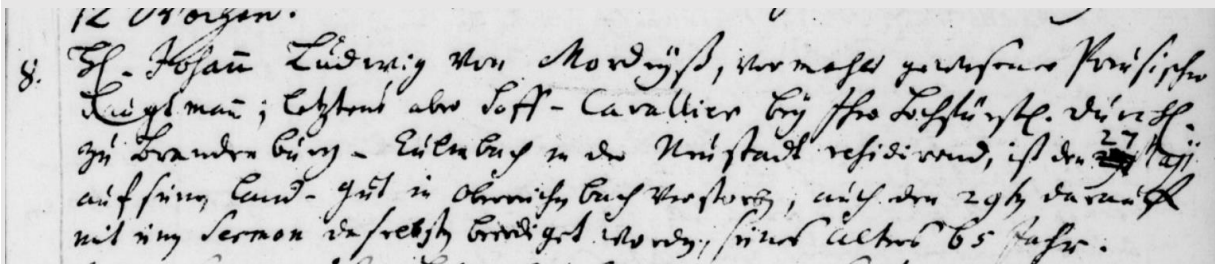 12 Wochen.
8. H. Johann Ludwig von Mordeyß, vormahls gewesener Preusischer
Haubtmann; letztens aber Hoff-Cavallier bey Ihro Hochfürstl. Durchl.
zu Brandenburg-Culmbach in der Neustadt residirend, ist den 27 Maji
auf seinem Land-Gut in Oberreichenbach verstorben, auch den 29ten darauff
mit einem Sermon daselbst beerdiget worden, seines Alters 65 Jahr.